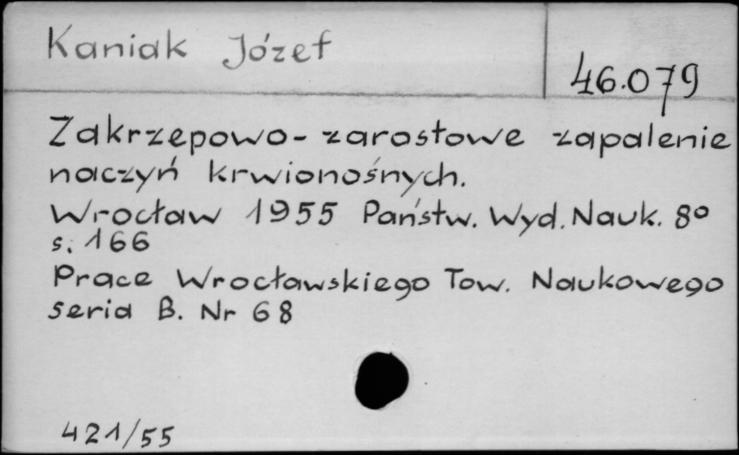 Kaniak Józef
46.079
Zakrzepowo-zarostowe zapalenie
naczyń krwionośnych.
Wrocław 1955 Państw. Wyd. Nauk. 8°
s. 166
Prace Wrocławskiego Tow. Naukowego
Seria B. Nr 68
421/55